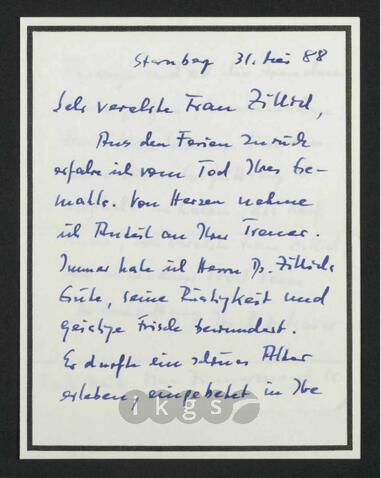 Starnberg 31. Mai 88
Sehr verehrte Frau Zillich,
Aus den Ferien zurück
erfahre ich vom Tod Ihres Ge-
mahls. Von Herzen nehme
ich Anteil an Ihrer Trauer.
Immer habe ich Herrn Dr. Zillichs
Güte, seine Rüstigkeit und
geistige Frische bewundert.
Er durfte ein schönes Alter
erleben, eingebettet in Ihre
ikgs